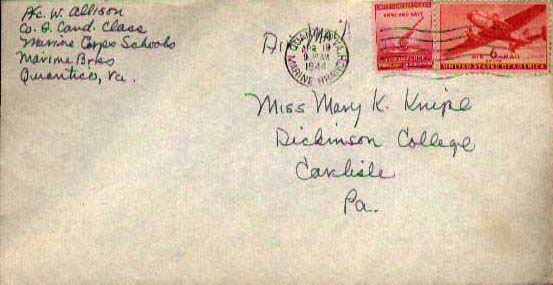 Pfc. W. Allison
Co. G. Cand. Class
Marine Corps Schools
Marine Brks
Quantico, Va.
Air Mail
QUANTICO, VA.
APR 19
9 AM
1944
MARINE BRANCH
ARMY AND NAVY
6¢
AIR MAIL
UNITED STATES OF AMERICA
Miss Mary K. Knipe
Dickinson College
Carlisle
Pa.